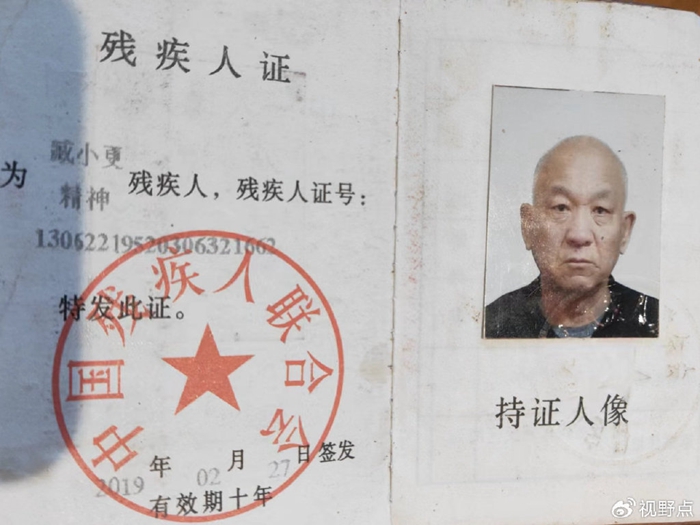 残疾人证
臧小更
为 精神 残疾人，残疾人证号：
13062219520306321662
特发此证。
中国残疾人联合会
2019 年 02 月 27 日签发
有效期十年
持证人像
视野点